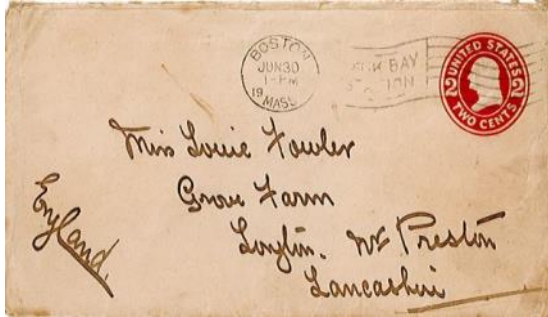 BOSTON
JUN 30
1-PM
19
MASS.
BACK BAY
STATION
UNITED STATES
2 2
TWO CENTS
Miss Louie Fowler
Grove Farm
Longton. Nr Preston
Lancashire
England.